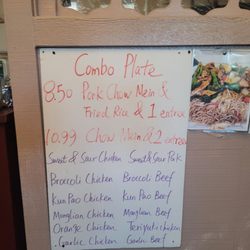 Combo Plate
8.50 Pork Chow Mein &
Fried Rice & 1 entree
10.99 Chow Mein & 2 entree
Sweet & Sour Chicken Sweet & Sour Pork
Broccoli Chicken Broccoli Beef
Kun Pao Chicken Kun Pao Beef
Monglian Chicken Monglian Beef
Orange Chicken Teriyaki chicken
Garlic Chicken Garlic Beef